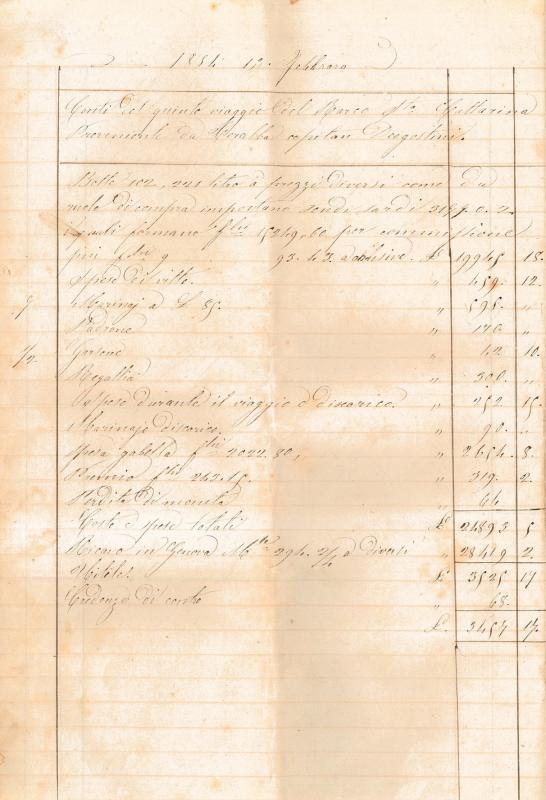 1854 12. Febbraro
Conti del quinto viaggio del Barco Catterina
Proveniente da capitan Dagostini.
Botti 102, 221 litro a prezzi diversi come da
nota di compra importano scudi sardi
i quali formano 15249.60 per commissione
più 9 93.43. £ 19945 18.
Spese di vitto. " 459. 12.
7 Marinaj a £. 85. " 595. "
Padrone " 170. "
1/2 Garzone " 42. 10.
Regallia " 300. "
Spese durante il viaggio e discarico. " 252. 15.
Marinajo discarico. " 90. "
Spesa gabella 2022.80, " 2654. 8.
Premio 242.15. " 319. 2.
Perdita di moneta " 64.
Costo e spese totali £ 24893 5
in Genova 294. 2/4 a diversi " 28419 2.
Utile £ 3525 17
Credenza di conto " 68.
£. 3457 17.